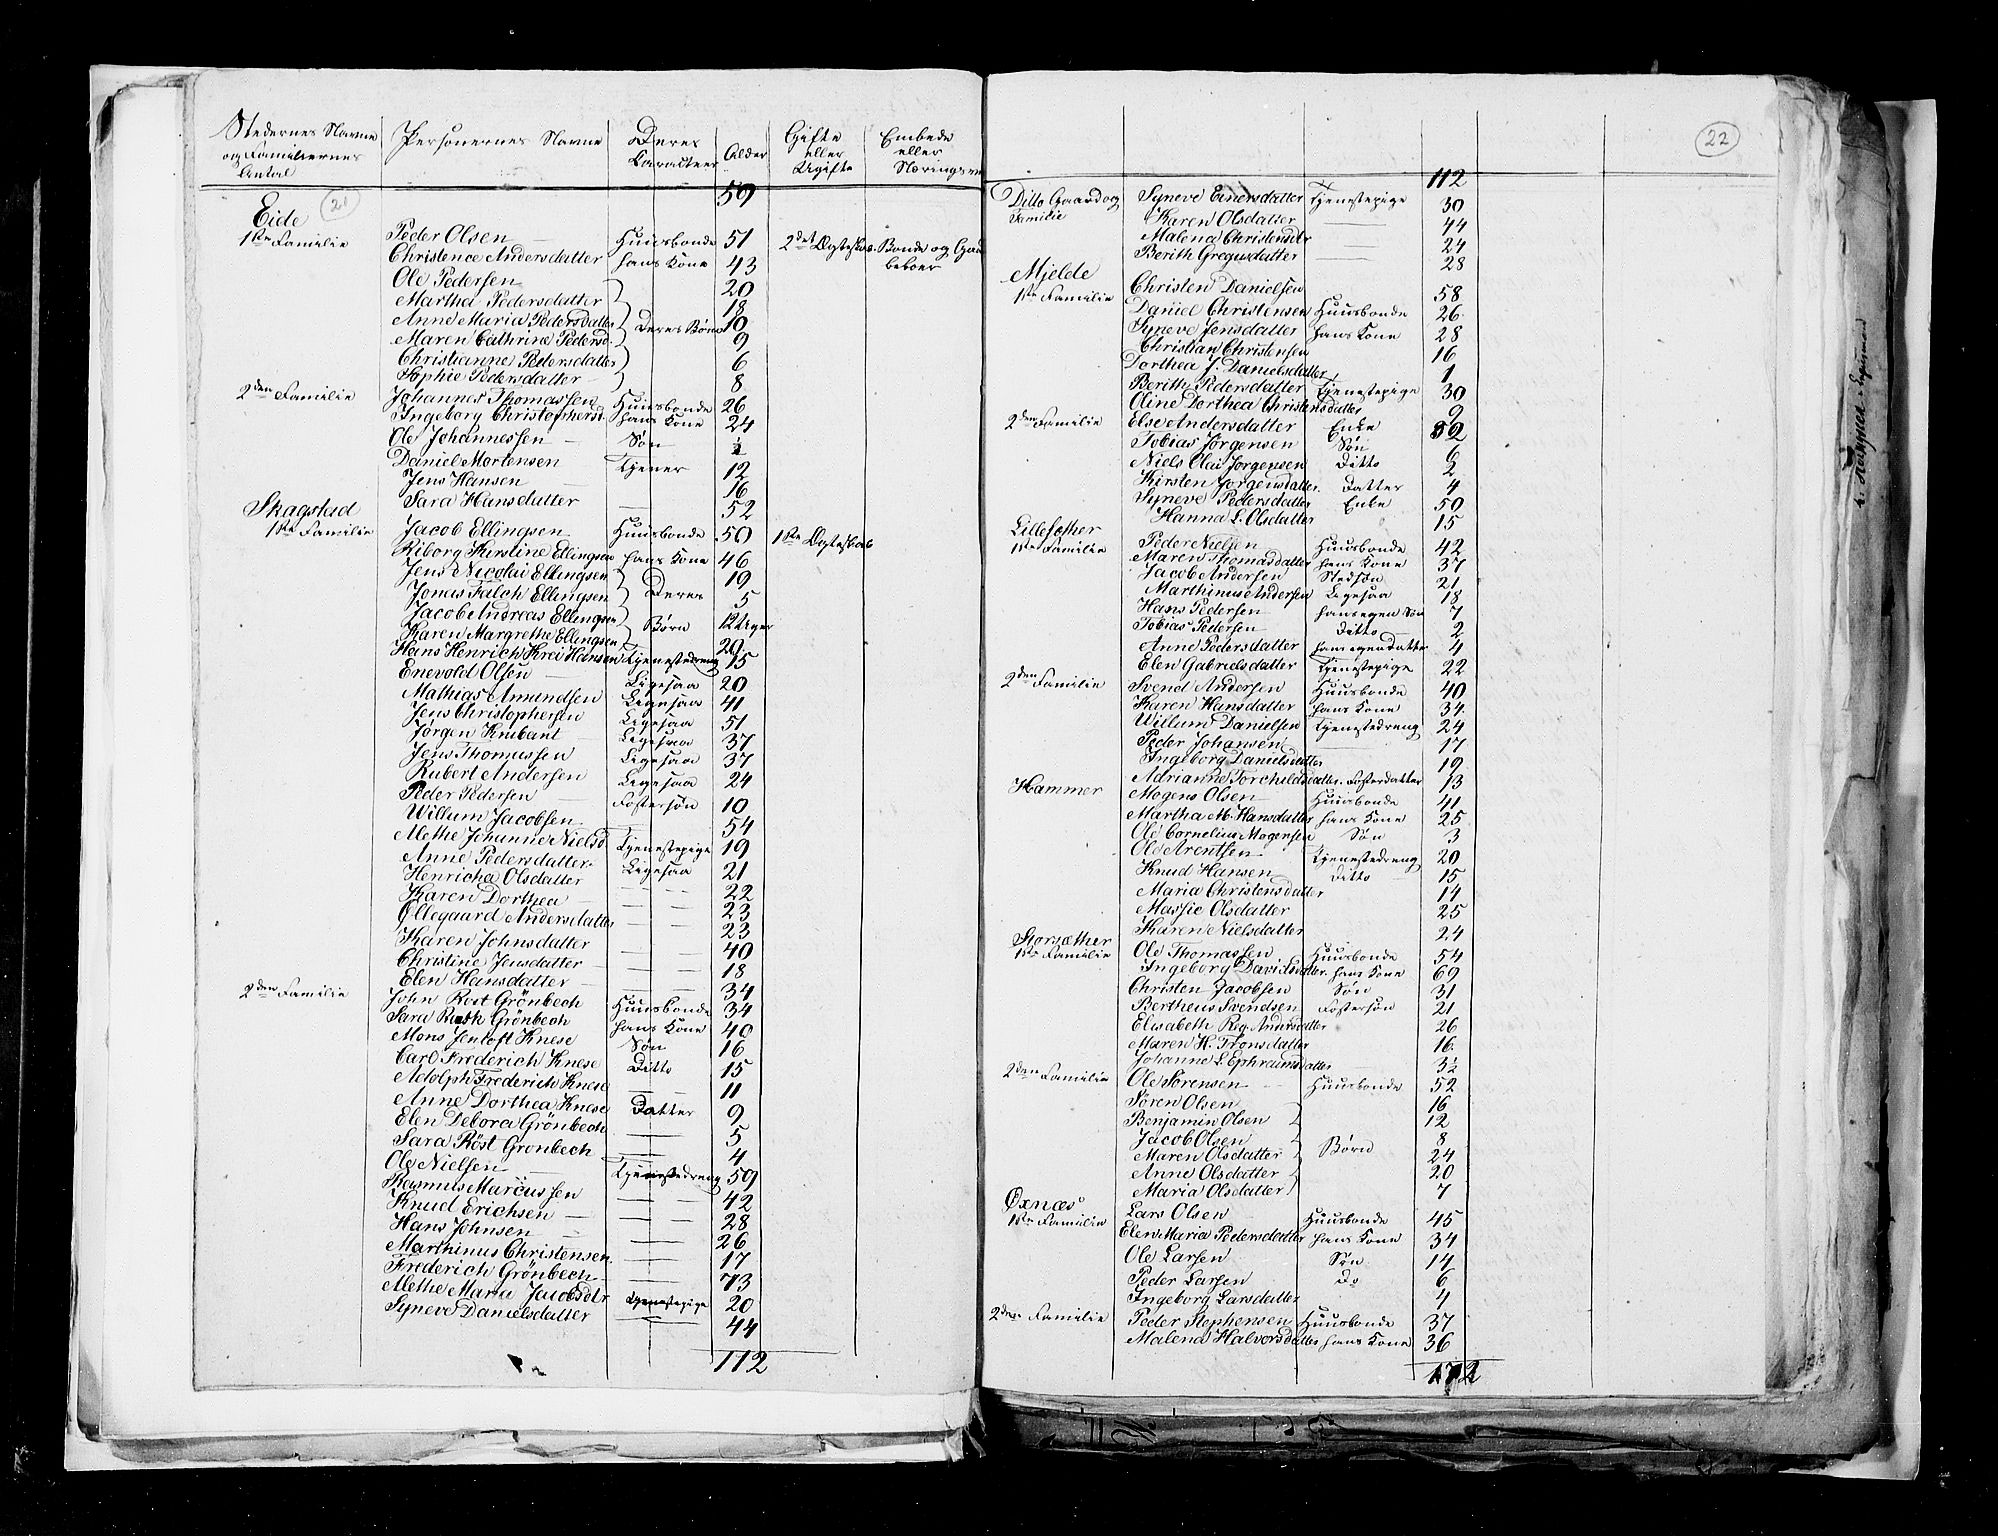 Stedernes Navne og Familiernes Antal | Personernes Navne | Deres Caracteer | Alder | Gifte eller Ugifte | Embede eller
59
Eide 21
1ste Familie Peder Olsen Huusbonde 51 2det Bonde og
Christence Andersdatter hans Kone 43 beboer
Ole Pedersen 20
Martha Pedersdatter 18
Anne Maria Pedersdatter Deres Børn 10
Maren Cathrine Pedersd. 9
Christianne Pedersdatter 6
Sophie Pedersdatter 8
2den Familie Johannes Thomassen Huusbonde 26
Ingeborg Christophersd. hans Kone 24
Ole Johannessen Søn
Daniel Mortensen Tjener 12
Jens Hansen 16
Sara Hansdatter 52
Skagstad
1ste Familie Jacob Ellingsen Huusbonde 50 1ste Ægteskab
Riborg Kirstine Ellingsen hans Kone 46
Jens Nicolai Ellingsen 19
Jonas Falch Ellingsen Deres 5
Jacob Andreas Ellingsen 12 Uger
Karen Margrethe Ellingsen Børn 20
Hans Henrich Krei Hansen Tjenestedreng 15
Enevold Olsen Ligesaa 20
Mathias Amundsen Ligesaa 41
Jens Christophersen Ligesaa 51
Jørgen Ligesaa 37
Jens Thomassen Ligesaa 37
Rubert Andersen Ligesaa 24
Peder Pedersen Fostersøn 10
Willum Jacobsen 54
Methe Johanne Nielsd. Tjenestepige 19
Anne Pedersdatter Ligesaa 21
Henricha Olsdatter 22
Karen Dorthea 23
Øllegaard Andersdatter 23
Karen Johnsdatter 40
Christine Jensdatter 18
Elen Hansdatter 34
2den Familie John Rost Grönbech Huusbonde 34
Sara Grönbech hans Kone 40
Mons Jentoft Knese Søn 16
Carl Frederich Knese Ditto 15
Adolph Frederich Knese 11
Anne Dorthea Knese Datter 9
Elen Debora Grönbech 5
Sara Röst Gronbech 4
Ole Nielsen Tjenestedreng 59
Rasmus Marcussen 42
Knud Erichsen 28
Hans Johnsen 26
Marthinus Christensen 17
Frederich Grönbech 73
Methe Maria Jacobsdtr Tjenestepige 20
Syneve Danielsdatter 44
112
22
112
Ditto Gaard og Familie Syneve Einersdatter Tjenestepige 30
Karen Olsdatter 44
Malena Christensdtr 24
Berith Gregusdatter 28
Mjelde
1ste Familie Christen Danielsen 58
Daniel Christensen Huusbonde 26
Syneve Jensdatter hans Kone 28
Christian Christensen 16
Dorthea J. Danielsdatter 1
Berith Pedersdatter Tjenestepige 30
Oline Dorthea Christensdatter 9
2den Familie Else Andersdatter Enke
Tobias Jørgensen Søn 6
Niels Olai Jorgensen Ditto 2
Kirsten Jorgensdatter Datter 4
Syneve Pedersdatter Enke 50
Hanna L. Olsdatter 15
Lillesæther
1ste Familie Peder Nielsen Huusbonde 42
Maren Thomasdatter hans Kone 37
Jacob Andersen Stedsøn 21
Marthinus Andersen Ligesaa 18
Hans Pedersen hans egen Søn 7
Tobias Pedersen Ditto 2
Anne Pedersdatter hans egen datter 4
Elen Gabrielsdatter Tjenestepige 22
2den Familie Svend Andersen Huusbonde 40
Karen Hansdatter hans Kone 34
Willum Danielsen Tjenestedreng 24
Peder Johansen 17
Ingeborg Danielsdatter 19
Adrianne Torchildsdatter Fosterdatter 13
Hammer Mogens Olsen Huusbonde 41
Martha M. Hansdatter hans Kone 25
Ole Cornelius Mogensen Søn 3
Ole Arentsen Tjenestedreng 20
Knud Hansen Ditto 15
Maria Christensdatter 14
Massie Olsdatter 25
Karen Nielsdatter 24
Storsæther
1ste Familie Ole Thomassen Huusbonde 54
Ingeborg Davidsdatter hans Kone 69
Christen Jacobsen Søn 31
Bertheus Svendsen Fostersøn 21
Elisabeth Reg. Andersdatter 26
Maren H. Tronsdatter 16
Johanne L. Ephraimsdatter
2den Familie Ole Sörensen Huusbonde 52
Sören Olsen 16
Benjamin Olsen 12
Jacob Olsen 8
Maren Olsdatter Børn 24
Anne Olsdatter 20
Maria Olsdatter 7
Öxnæs
1ste Familie Lars Olsen Huusbonde 45
Elen Maria Pedersdatter hans Kone 34
Ole Larsen Søn 14
Peder Larsen do 6
Ingeborg Larsdatter 4
2den Familie Peder Stephensen Huusbonde 37
Malena Halvorsdatter hans Kone 36
172